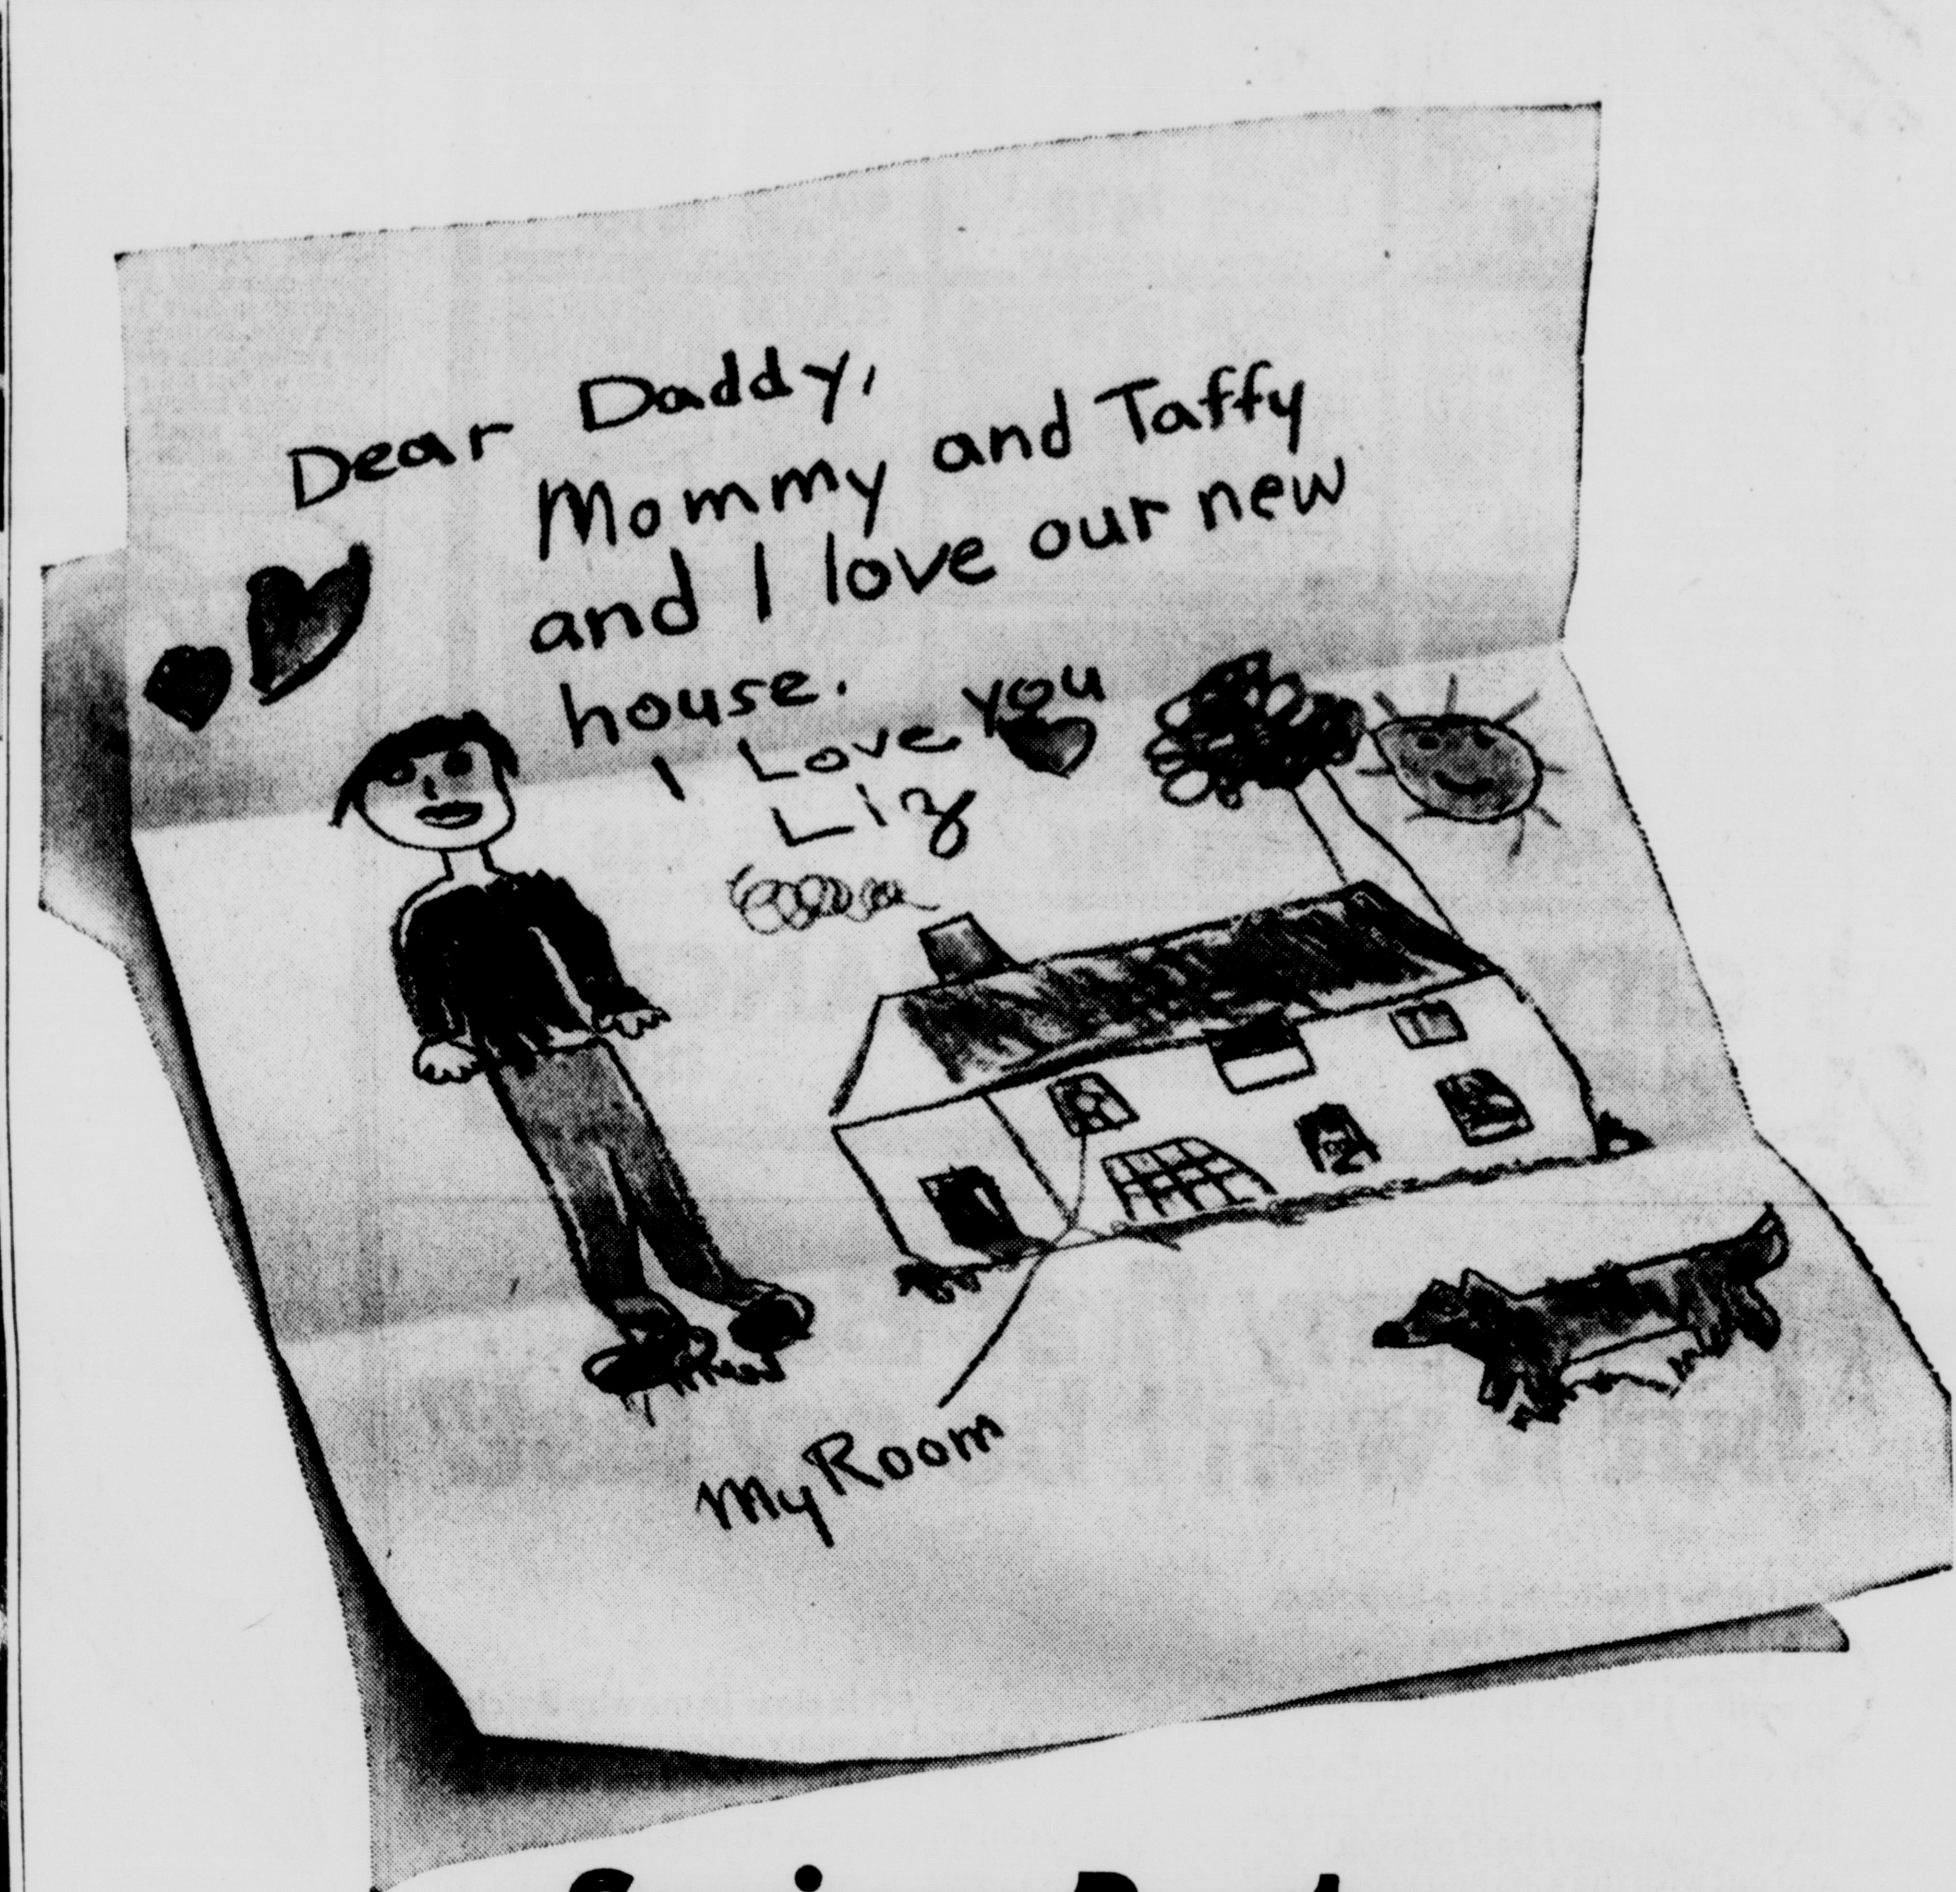 Dear Daddy,
Mommy and Taffy
and I love our new
house.
I Love you
Liz
My Room